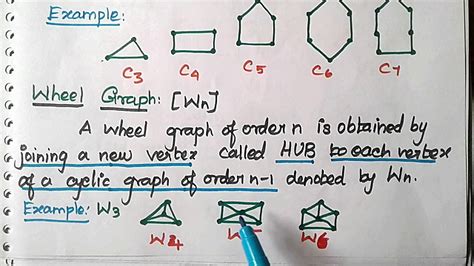 Example:
C3 C4 C5 C6 C7
Wheel Graph: [Wn]
A wheel graph of order n is obtained by
joining a new vertex called HUB to each vertex
of a cyclic graph of order n-1 denoted by Wn.
Example: W3
W4 W5 W6